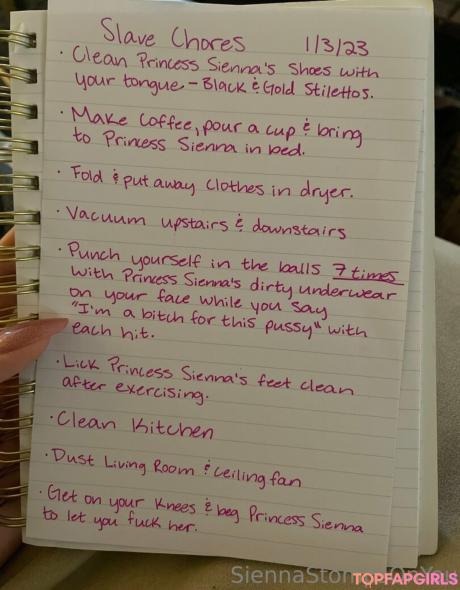 Slave Chores 1/3/23
· Clean Princess Sienna's shoes with
your tongue - Black & Gold Stilettos.
· Make Coffee, pour a cup & bring
to Princess Sienna in bed.
· Fold & put away clothes in dryer.
· Vacuum upstairs & downstairs
· Punch yourself in the balls 7 times
with Princess Sienna's dirty underwear
on your face while you say
"I'm a bitch for this pussy" with
each hit.
· Lick Princess Sienna's feet clean
after exercising.
· Clean Kitchen
· Dust Living Room & ceiling fan
· Get on your knees & beg Princess Sienna
to let you fuck her.
TOPFAPGIRLS